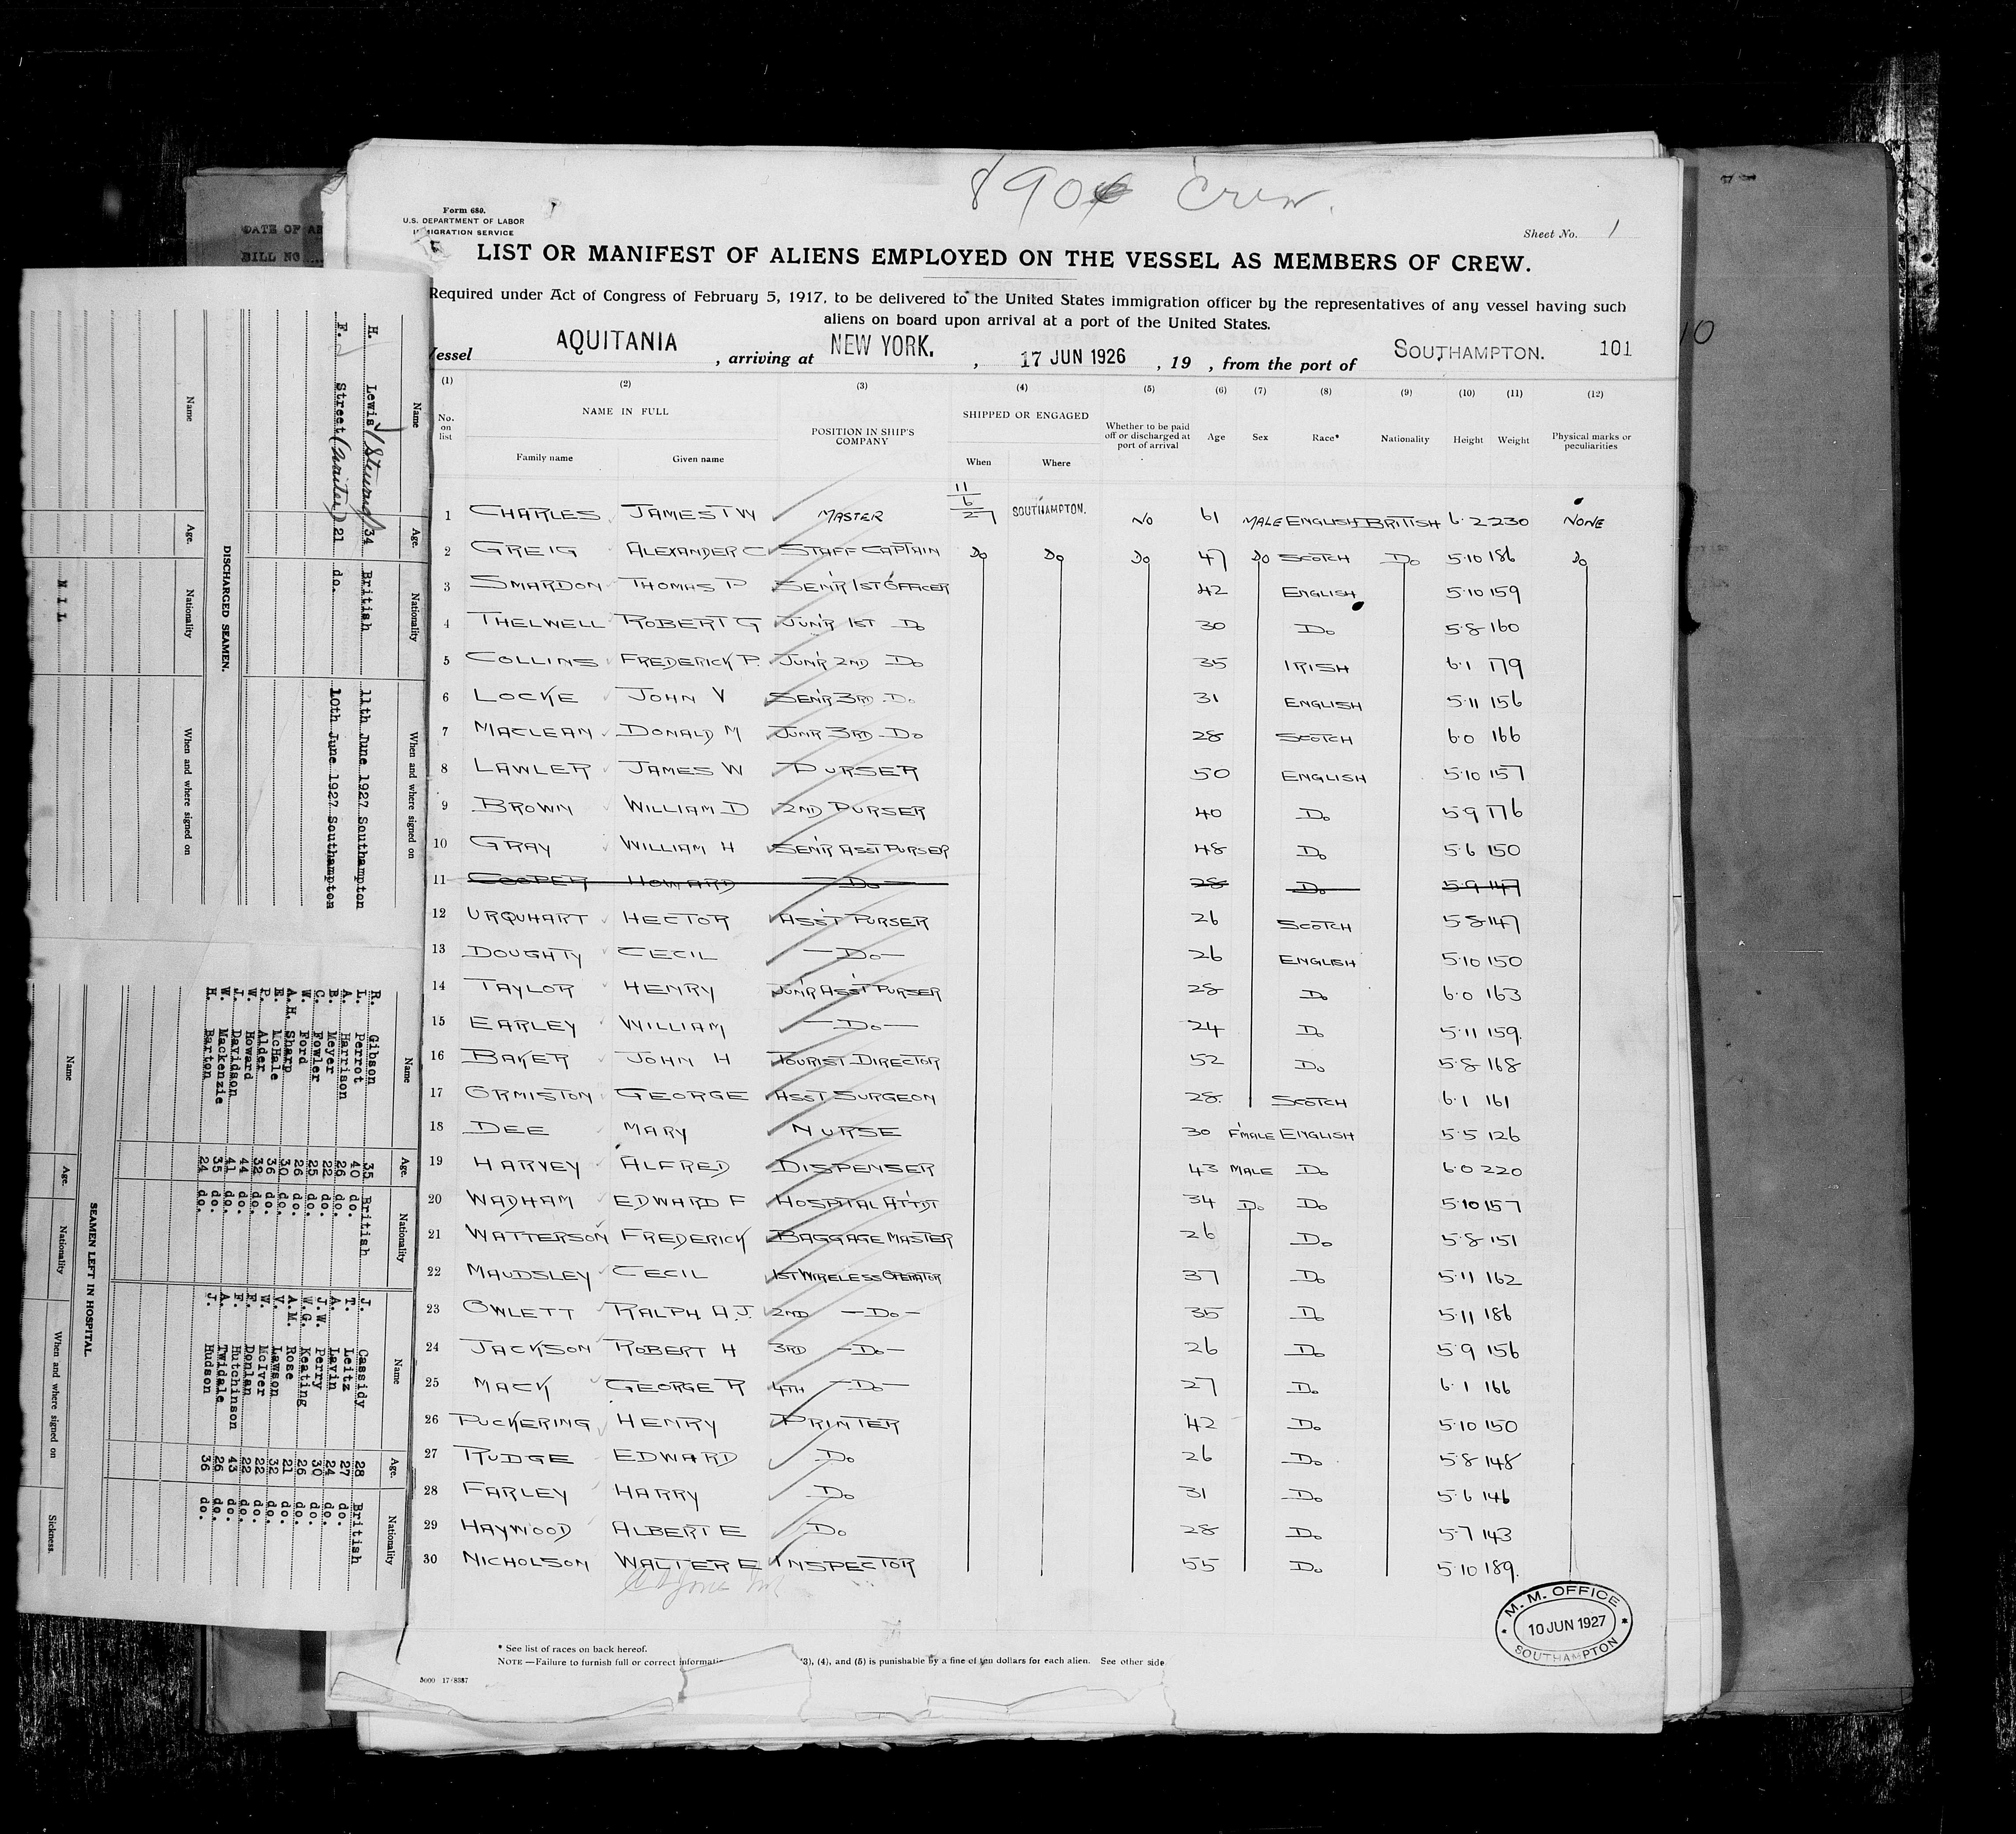 890 Crew.
Form 680.
U.S. DEPARTMENT OF LABOR
IMMIGRATION SERVICE
Sheet No. 1
LIST OR MANIFEST OF ALIENS EMPLOYED ON THE VESSEL AS MEMBERS OF CREW.
Required under Act of Congress of February 5, 1917, to be delivered to the United States immigration officer by the representatives of any vessel having such
aliens on board upon arrival at a port of the United States.
Vessel AQUITANIA, arriving at NEW YORK., 17 JUN 1926, 19 , from the port of SOUTHAMPTON. 101
(1) (2) (3) (4) (5) (6) (7) (8) (9) (10) (11) (12)
No. on list NAME IN FULL Family name Given name POSITION IN SHIP'S COMPANY SHIPPED OR ENGAGED When Where Whether to be paid off or discharged at port of arrival Age Sex Race* Nationality Height Weight Physical marks or peculiarities
1 CHARLES JAMES T W MASTER 11/6/27 SOUTHAMPTON. NO 61 MALE ENGLISH BRITISH 6·2 230 NONE
2 GREIG ALEXANDER C STAFF CAPTAIN Do Do Do 47 Do SCOTCH Do 5·10 186 Do
3 SMARDON THOMAS P SEN'R 1ST OFFICER 42 ENGLISH 5·10 159
4 THELWELL ROBERT G JUN'R 1ST Do 30 Do 5·8 160
5 COLLINS FREDERICK P. JUN'R 2ND Do 35 IRISH 6·1 179
6 LOCKE JOHN V SEN'R 3RD Do 31 ENGLISH 5·11 156
7 MACLEAN DONALD M JUNR 3RD Do 28 SCOTCH 6·0 166
8 LAWLER JAMES W PURSER 50 ENGLISH 5·10 157
9 BROWN WILLIAM D 2ND PURSER 40 Do 5·9 176
10 GRAY WILLIAM H SEN'R ASST PURSER 48 Do 5·6 150
11 COOPER HOWARD —Do— 28 Do 5·9 147
12 URQUHART HECTOR ASS'T PURSER 26 SCOTCH 5·8 147
13 DOUGHTY CECIL —Do— 26 ENGLISH 5·10 150
14 TAYLOR HENRY JUN'R ASS'T PURSER 28 Do 6·0 163
15 EARLEY WILLIAM —Do— 24 Do 5·11 159.
16 BAKER JOHN H TOURIST DIRECTOR 52 Do 5·8 168
17 ORMISTON GEORGE ASST SURGEON 28. SCOTCH 6·1 161
18 DEE MARY NURSE 30 F'MALE ENGLISH 5·5 126
19 HARVEY ALFRED DISPENSER 43 MALE Do 6·0 220
20 WADHAM EDWARD F HOSPITAL ATT'DT 34 Do Do 5·10 157
21 WATTERSON FREDERICK BAGGAGE MASTER 26 Do 5·8 151
22 MAUDSLEY CECIL 1ST WIRELESS OPERATOR 37 Do 5·11 162
23 OWLETT RALPH A.J. 2ND —Do— 35 Do 5·11 186
24 JACKSON ROBERT H 3RD —Do— 26 Do 5·9 156
25 MACK GEORGE R 4TH —Do— 27 Do 6·1 166
26 PUCKERING HENRY PRINTER 42 Do 5·10 150
27 RUDGE EDWARD Do 26 Do 5·8 148
28 FARLEY HARRY Do 31 Do 5·6 146
29 HAYWOOD ALBERT E Do 28 Do 5·7 143
30 NICHOLSON WALTER E INSPECTOR 55 Do 5·10 189.
M. M. OFFICE
10 JUN 1927
SOUTHAMPTON
* See list of races on back hereof.
NOTE —Failure to furnish full or correct (3), (4), and (5) is punishable by a fine of ten dollars for each alien. See other side
5000 17/8387
DATE OF
BILL NO
Name Age. Nationality When and where signed on
H. Lewis (Steward) 34 British 11th June 1927 Southampton
F. Street (Waiter) 21 do. 10th June 1927 Southampton
DISCHARGED SEAMEN.
Name Age. Nationality When and where signed on
N I L
Name Age. Nationality Name Age. Nationality
R. Gibson 35 British J. Cassidy 28 British
L. Perrot 40 do. T. Leitz 27 do.
A. Harrison 26 do. A. Lavin 24 do.
B. Meyer 22 do. J.W. Perry 30 do.
C. Fowler 25 do. W.G. Keating 26 do.
W. Ford 26 do. A.M. Rose 21 do.
A.H. Sharp 30 do. V. Lawson 32 do.
E. McHale 36 do. W. McIver 22 do.
P. Alder 32 do. F. Donlan 22 do.
W. Howard 44 do. F. Hutchinson 43 do.
J. Davidson 41 do. A. Twidale 26 do.
W. Mackenzie 35 do. J. Hudson 36 do.
H. Barton 24 do.
SEAMEN LEFT IN HOSPITAL
Name Age. Nationality When and where signed on Sickness.